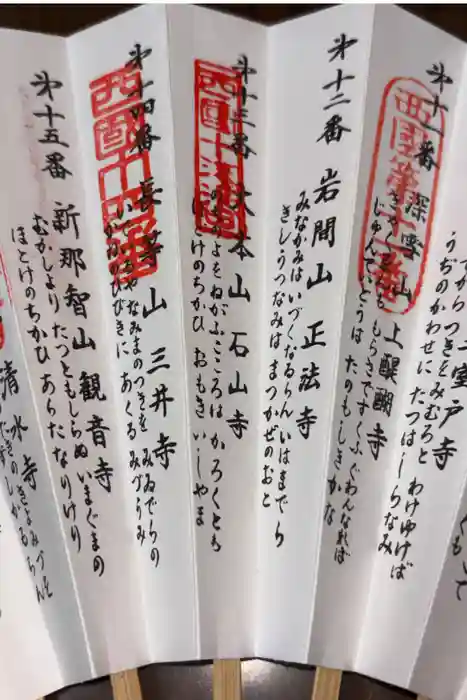 二室戸寺
うぢのかわせに たつは しらなみ
第十一番 深雪山 上醍醐寺
もらさですくふ ぐわんなれば
じゅんていどうは たのもしきかな
第十二番 岩間山 正法寺
みなかみは いづくなるらん いはまでら
きしうつなみは まつかぜのおと
第十三番 大本山 石山寺
のちのよを ねがふこころは かろくとも
ほとけのちかひ おもき いしやま
第十四番 長等山 三井寺
いでいるや なみまのつきを みゐでらの
かねのひびきに あくる みづうみ
第十五番 新那智山 観音寺
むかしより たつともしらぬ いまぐまの
ほとけのちかひ あらたなりけり
清水寺
西國第十一番
西國十三番
西國十四番